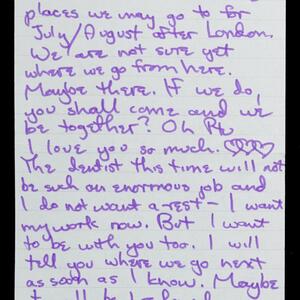 places we may go to for
July/August after London.
We are not sure yet
where we go from here.
Maybe there. If we do,
you shall come and we
be together? Oh
I love you so much.
The dentist this time will not
be such an enormous job and
I do not want a rest - I want
my work now. But I want
to be with you too. I will
tell you where we go next
as soon as I know. Maybe